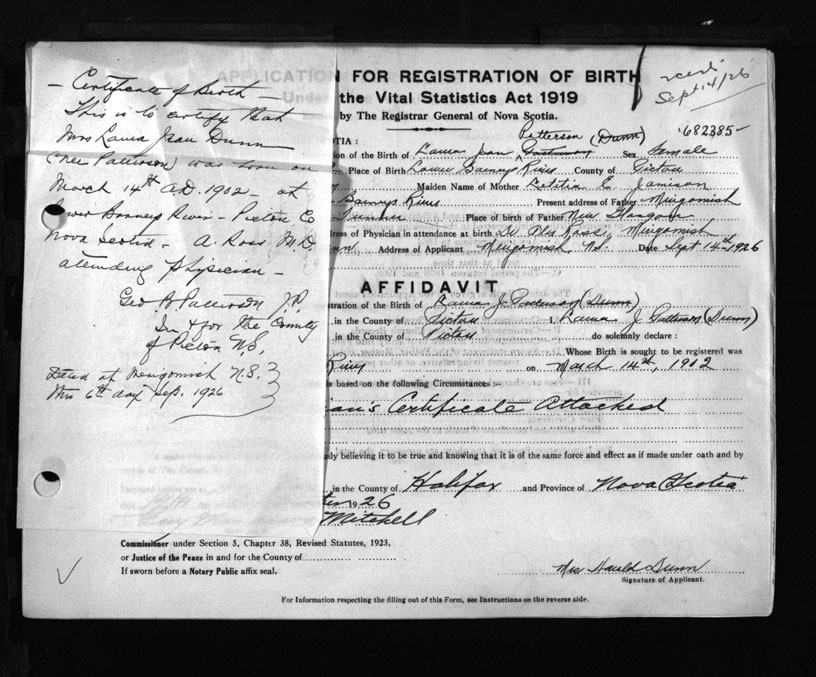 — Certificate of Birth —
This is to certify that
Mrs Laura Jean Dunn
(nee Patterson) was born on
March 14th A.D. 1902 — at
Lower Barneys River — Pictou Co
Nova Scotia — A. Ross M.D.
attending Physician —
Geo B Patterson J.P.
In & for the County
of Pictou N.S,
Dated at Merigomish N.S.
this 6th day Sep. 1926
APPLICATION FOR REGISTRATION OF BIRTH
Sept 14/26
Under the Vital Statistics Act 1919
by The Registrar General of Nova Scotia.
Patterson (Dunn) 682385
OTIA :
ion of the Birth of Laura Jean Sex Female
Place of Birth Lower Barneys River County of Pictou
Maiden Name of Mother Letitia C Jamison
Barneys River Present address of Father Merigomish
Place of birth of Father New Glasgow
dress of Physician in attendance at birth Dr Alex Ross, Merigomish
nn Address of Applicant Merigomish N.S. Date Sept 14th 1926
AFFIDAVIT
istration of the Birth of Laura J. Patterson (Dunn)
in the County of Pictou I, Laura J. Patterson (Dunn)
in the County of Pictou do solemnly declare :
Whose Birth is sought to be registered was
River on March 14th, 1902
is based on the following Circumstances :-
ian's Certificate Attached
sly believing it to be true and knowing that it is of the same force and effect as if made under oath and by
in the County of Halifax and Province of Nova Scotia
1926
Mitchell
Commissioner under Section 5, Chapter 38, Revised Statutes, 1923,
or Justice of the Peace in and for the County of
If sworn before a Notary Public affix seal.
Mrs Harold Dunn
Signature of Applicant.
For Information respecting the filling out of this Form, see Instructions on the reverse side.